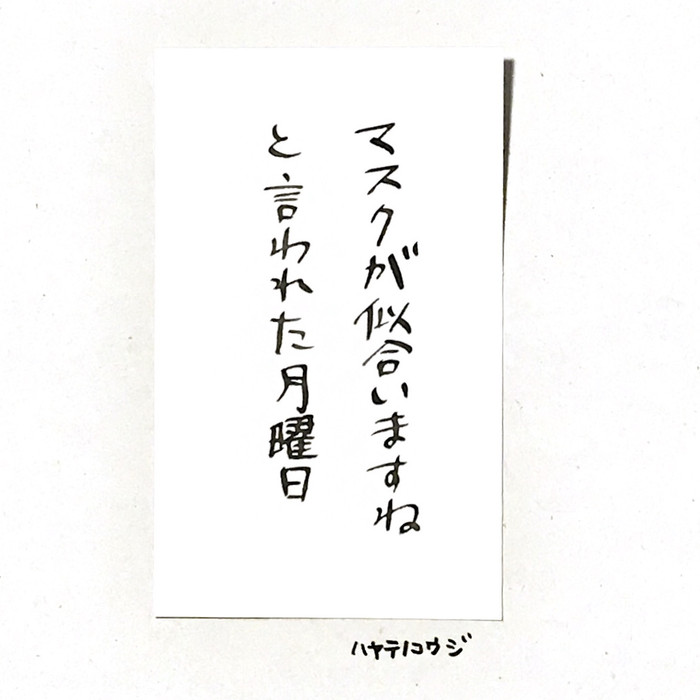 マスクが似合いますね
と言われた月曜日
ハヤテノコウジ